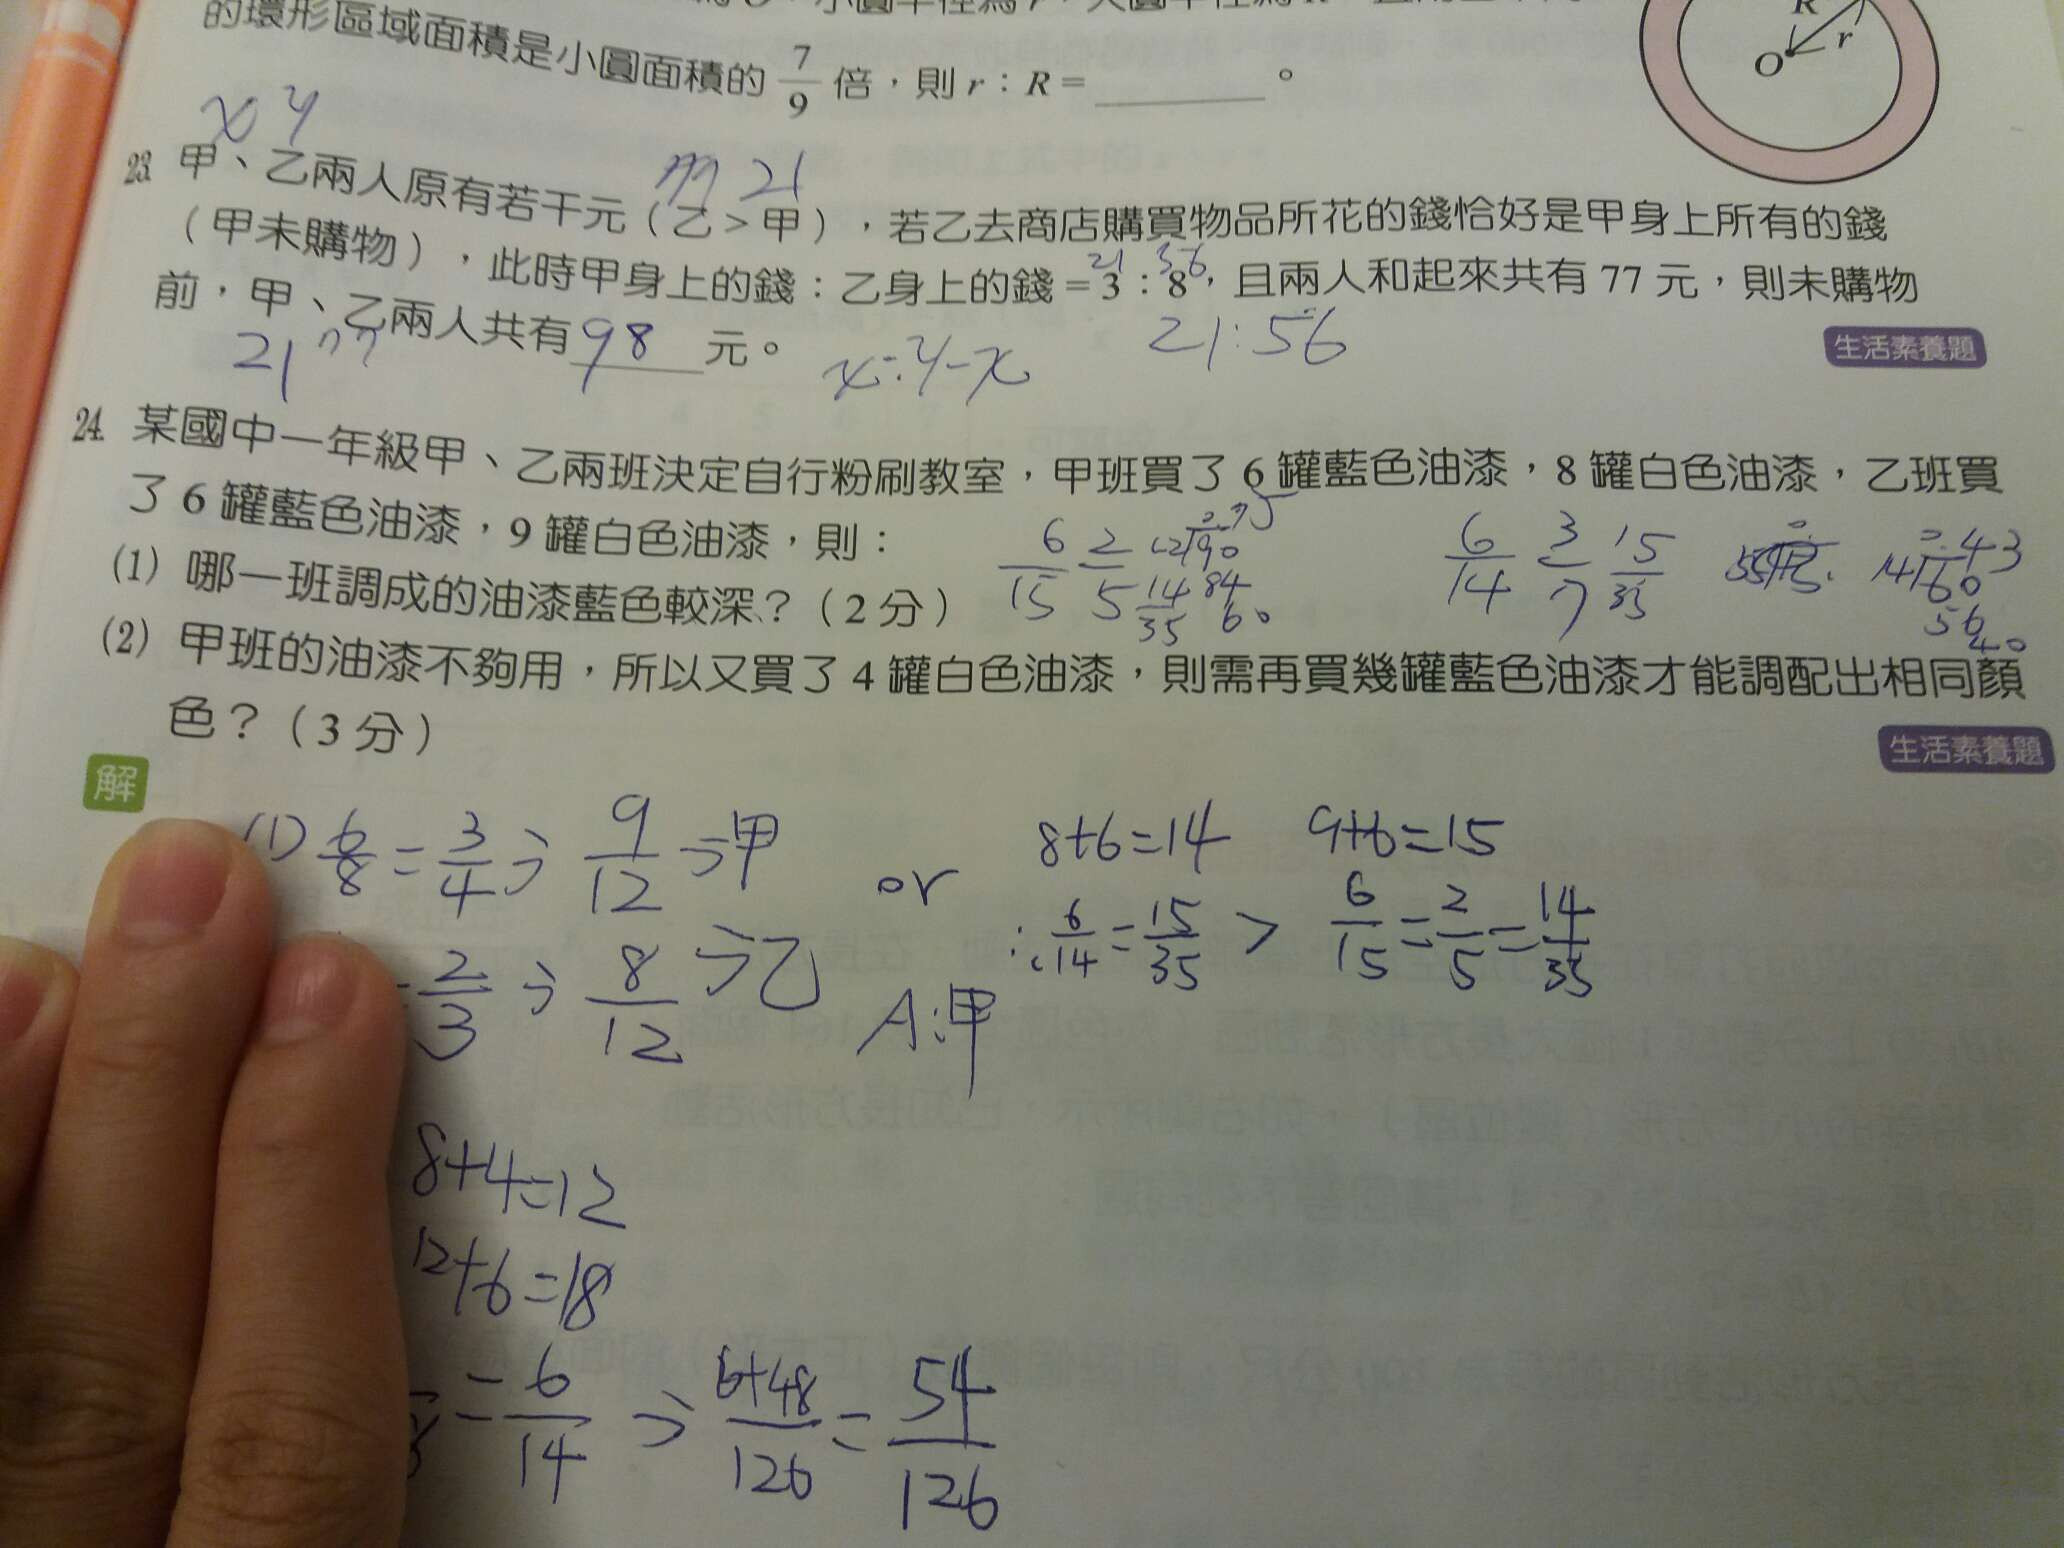 的環形區域面積是小圓面積的 7/9 倍，則 r：R＝________。
R
r
O
x y
23. 甲、乙兩人原有若干元（乙＞甲），若乙去商店購買物品所花的錢恰好是甲身上所有的錢
77 21
（甲未購物），此時甲身上的錢：乙身上的錢＝3：8，且兩人和起來共有 77 元，則未購物
21 56
前，甲、乙兩人共有 98 元。
21 77
x:y-x
21:56
生活素養題
24. 某國中一年級甲、乙兩班決定自行粉刷教室，甲班買了 6 罐藍色油漆，8 罐白色油漆，乙班買
了 6 罐藍色油漆，9 罐白色油漆，則：
6/15 2/5 14/35
6/14 3/7 15/35
(1) 哪一班調成的油漆藍色較深？（2 分）
(2) 甲班的油漆不夠用，所以又買了 4 罐白色油漆，則需再買幾罐藍色油漆才能調配出相同顏
色？（3 分）
生活素養題
解
(1) 6/8 = 3/4 ⇒ 9/12 ⇒甲
= 2/3 ⇒ 8/12 ⇒乙
or
8+6=14 9+6=15
∴ 6/14 = 15/35 > 6/15 = 2/5 = 14/35
A:甲
8+4=12
12+6=18
= 6/14 ⇒ 6+48/126 = 54/126